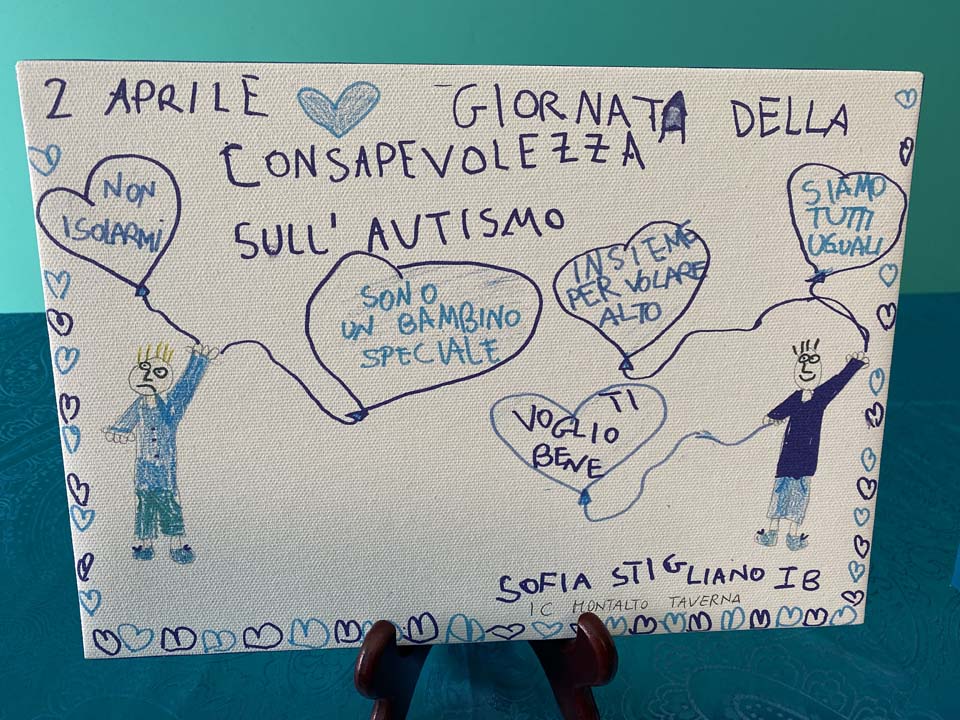 2 APRILE GIORNATA DELLA
CONSAPEVOLEZZA
SULL' AUTISMO
NON
ISOLARMI
SONO
UN BAMBINO
SPECIALE
INSIEME
PER VOLARE
ALTO
SIAMO
TUTTI
UGUALI
TI
VOGLIO
BENE
SOFIA STIGLIANO IB
IC MONTALTO TAVERNA